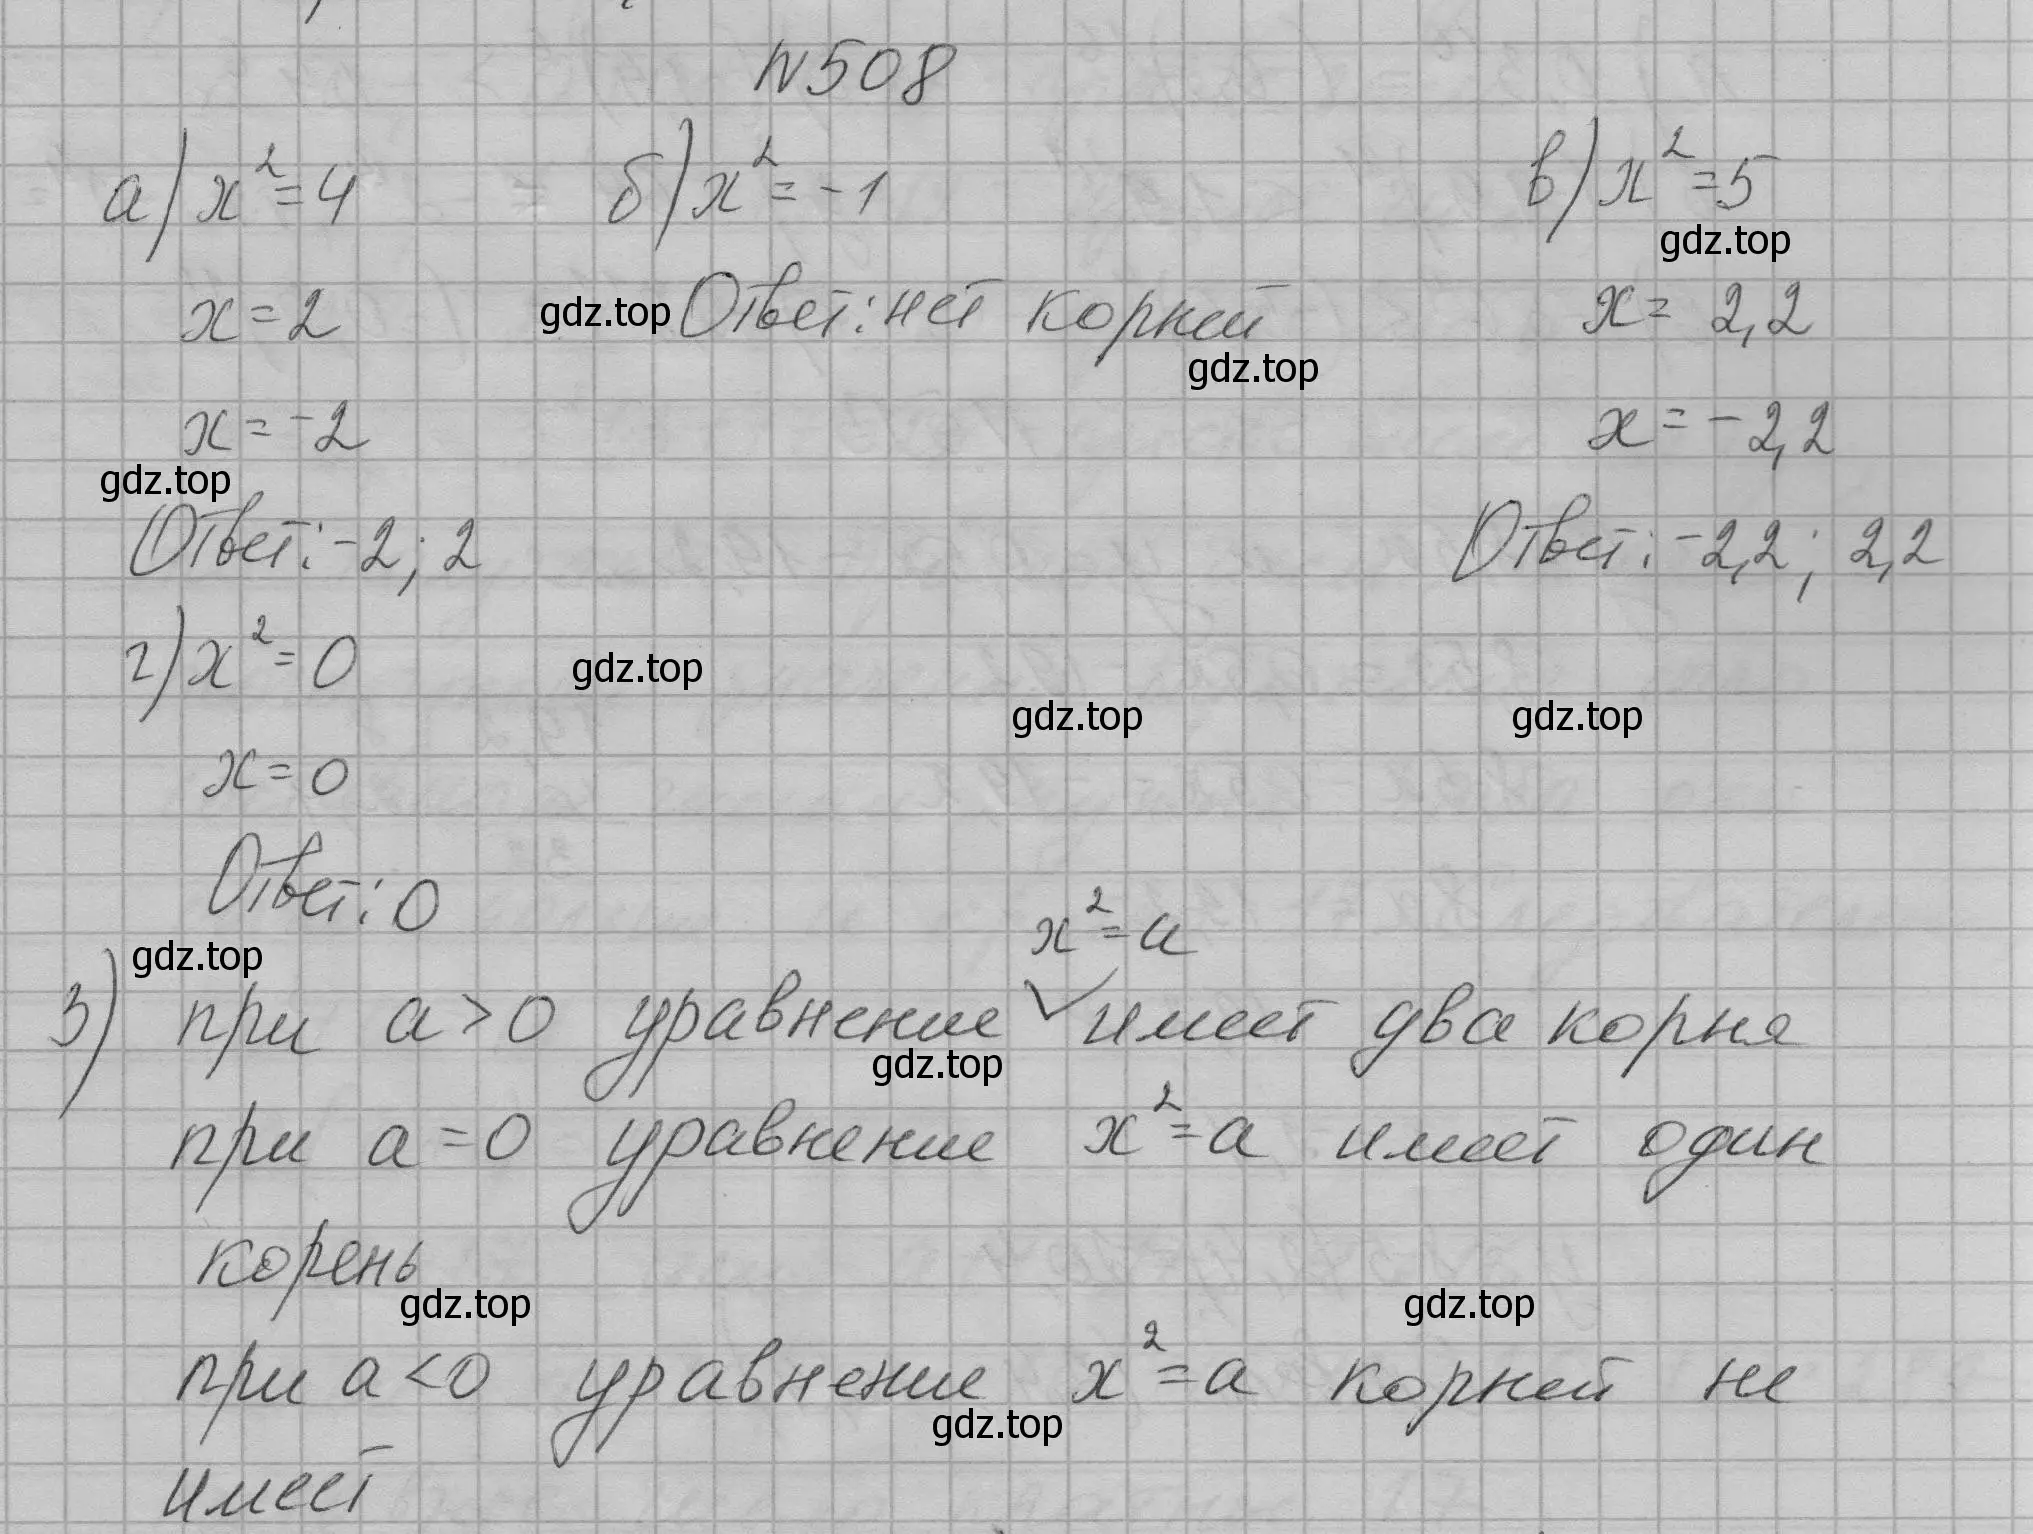 N508
а) x²=4 б) x²=-1 в) x²=5
gdz.top
x=2 gdz.top Ответ: нет корней x= 2,2
gdz.top
x=-2 x=-2,2
gdz.top
Ответ: -2; 2 Ответ: -2,2; 2,2
г) x²=0 gdz.top
gdz.top gdz.top
x=0
Ответ: 0
x²=a
gdz.top
3) при a>0 уравнение ✓ имеет два корня
gdz.top
при a=0 уравнение x²=a имеет один
корень
gdz.top gdz.top
при a<0 уравнение x²=a корней не
gdz.top
имеет